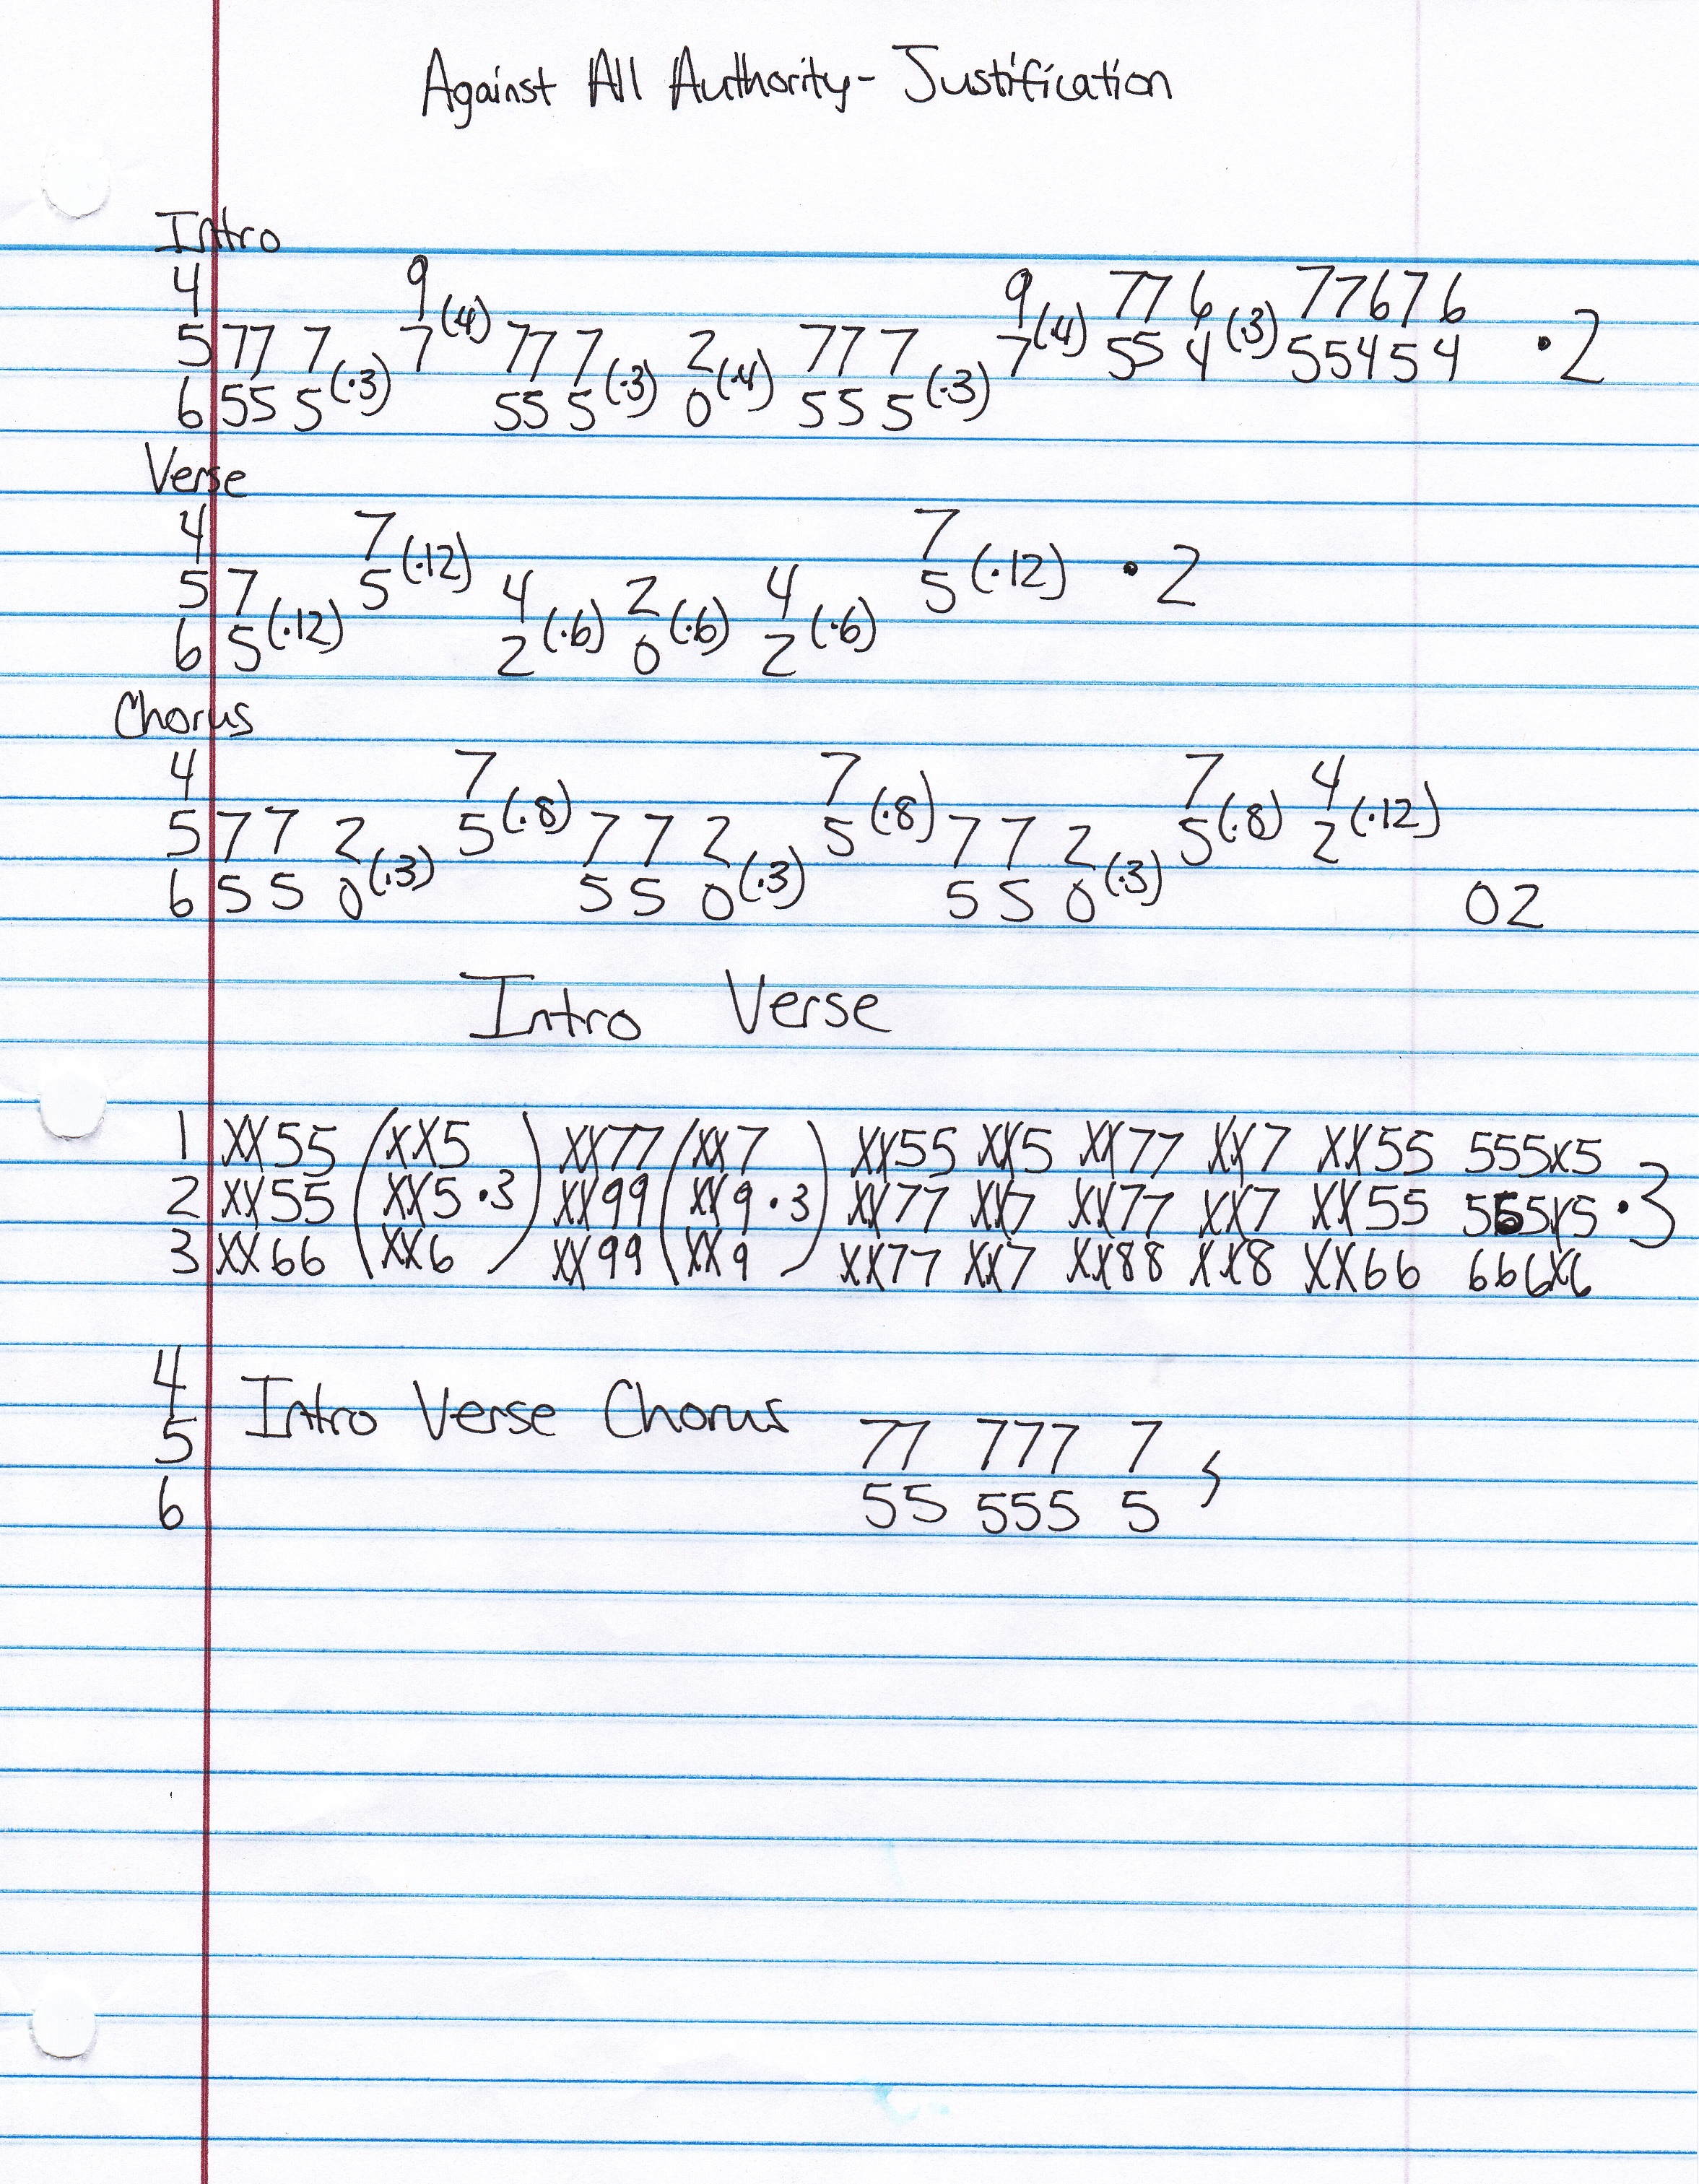 Against All Authority - Justification
Intro
4 9 9 77 6 77676
5 77 7 7 (·4) 77 7 2 77 7 7 (·4) 55 4 (·3) 55454 · 2
6 55 5 (·3) 55 5 (·3) 0 (·4) 55 5 (·3)
Verse
4 7 7
5 7 5 (·12) 4 2 4 5 (·12) · 2
6 5 (·12) 2 (·6) 0 (·6) 2 (·6)
Chorus
4 7 7 7 4
5 7 7 2 5 (·8) 7 7 2 5 (·8) 7 7 2 5 (·8) 2 (·12)
6 5 5 0 (·3) 5 5 0 (·3) 5 5 0 (·3) 02
Intro Verse
1 XX55 (XX5 ) XX77 (XX7 ) XX55 XX5 XX77 XX7 XX55 555X5
2 XX55 (XX5 ·3) XX99 (XX9 ·3) XX77 XX7 XX77 XX7 XX55 555X5 ·3
3 XX66 (XX6 ) XX99 (XX9 ) XX77 XX7 XX88 XX8 XX66 666X6
4
5 Intro Verse Chorus 77 777 7
6 55 555 5